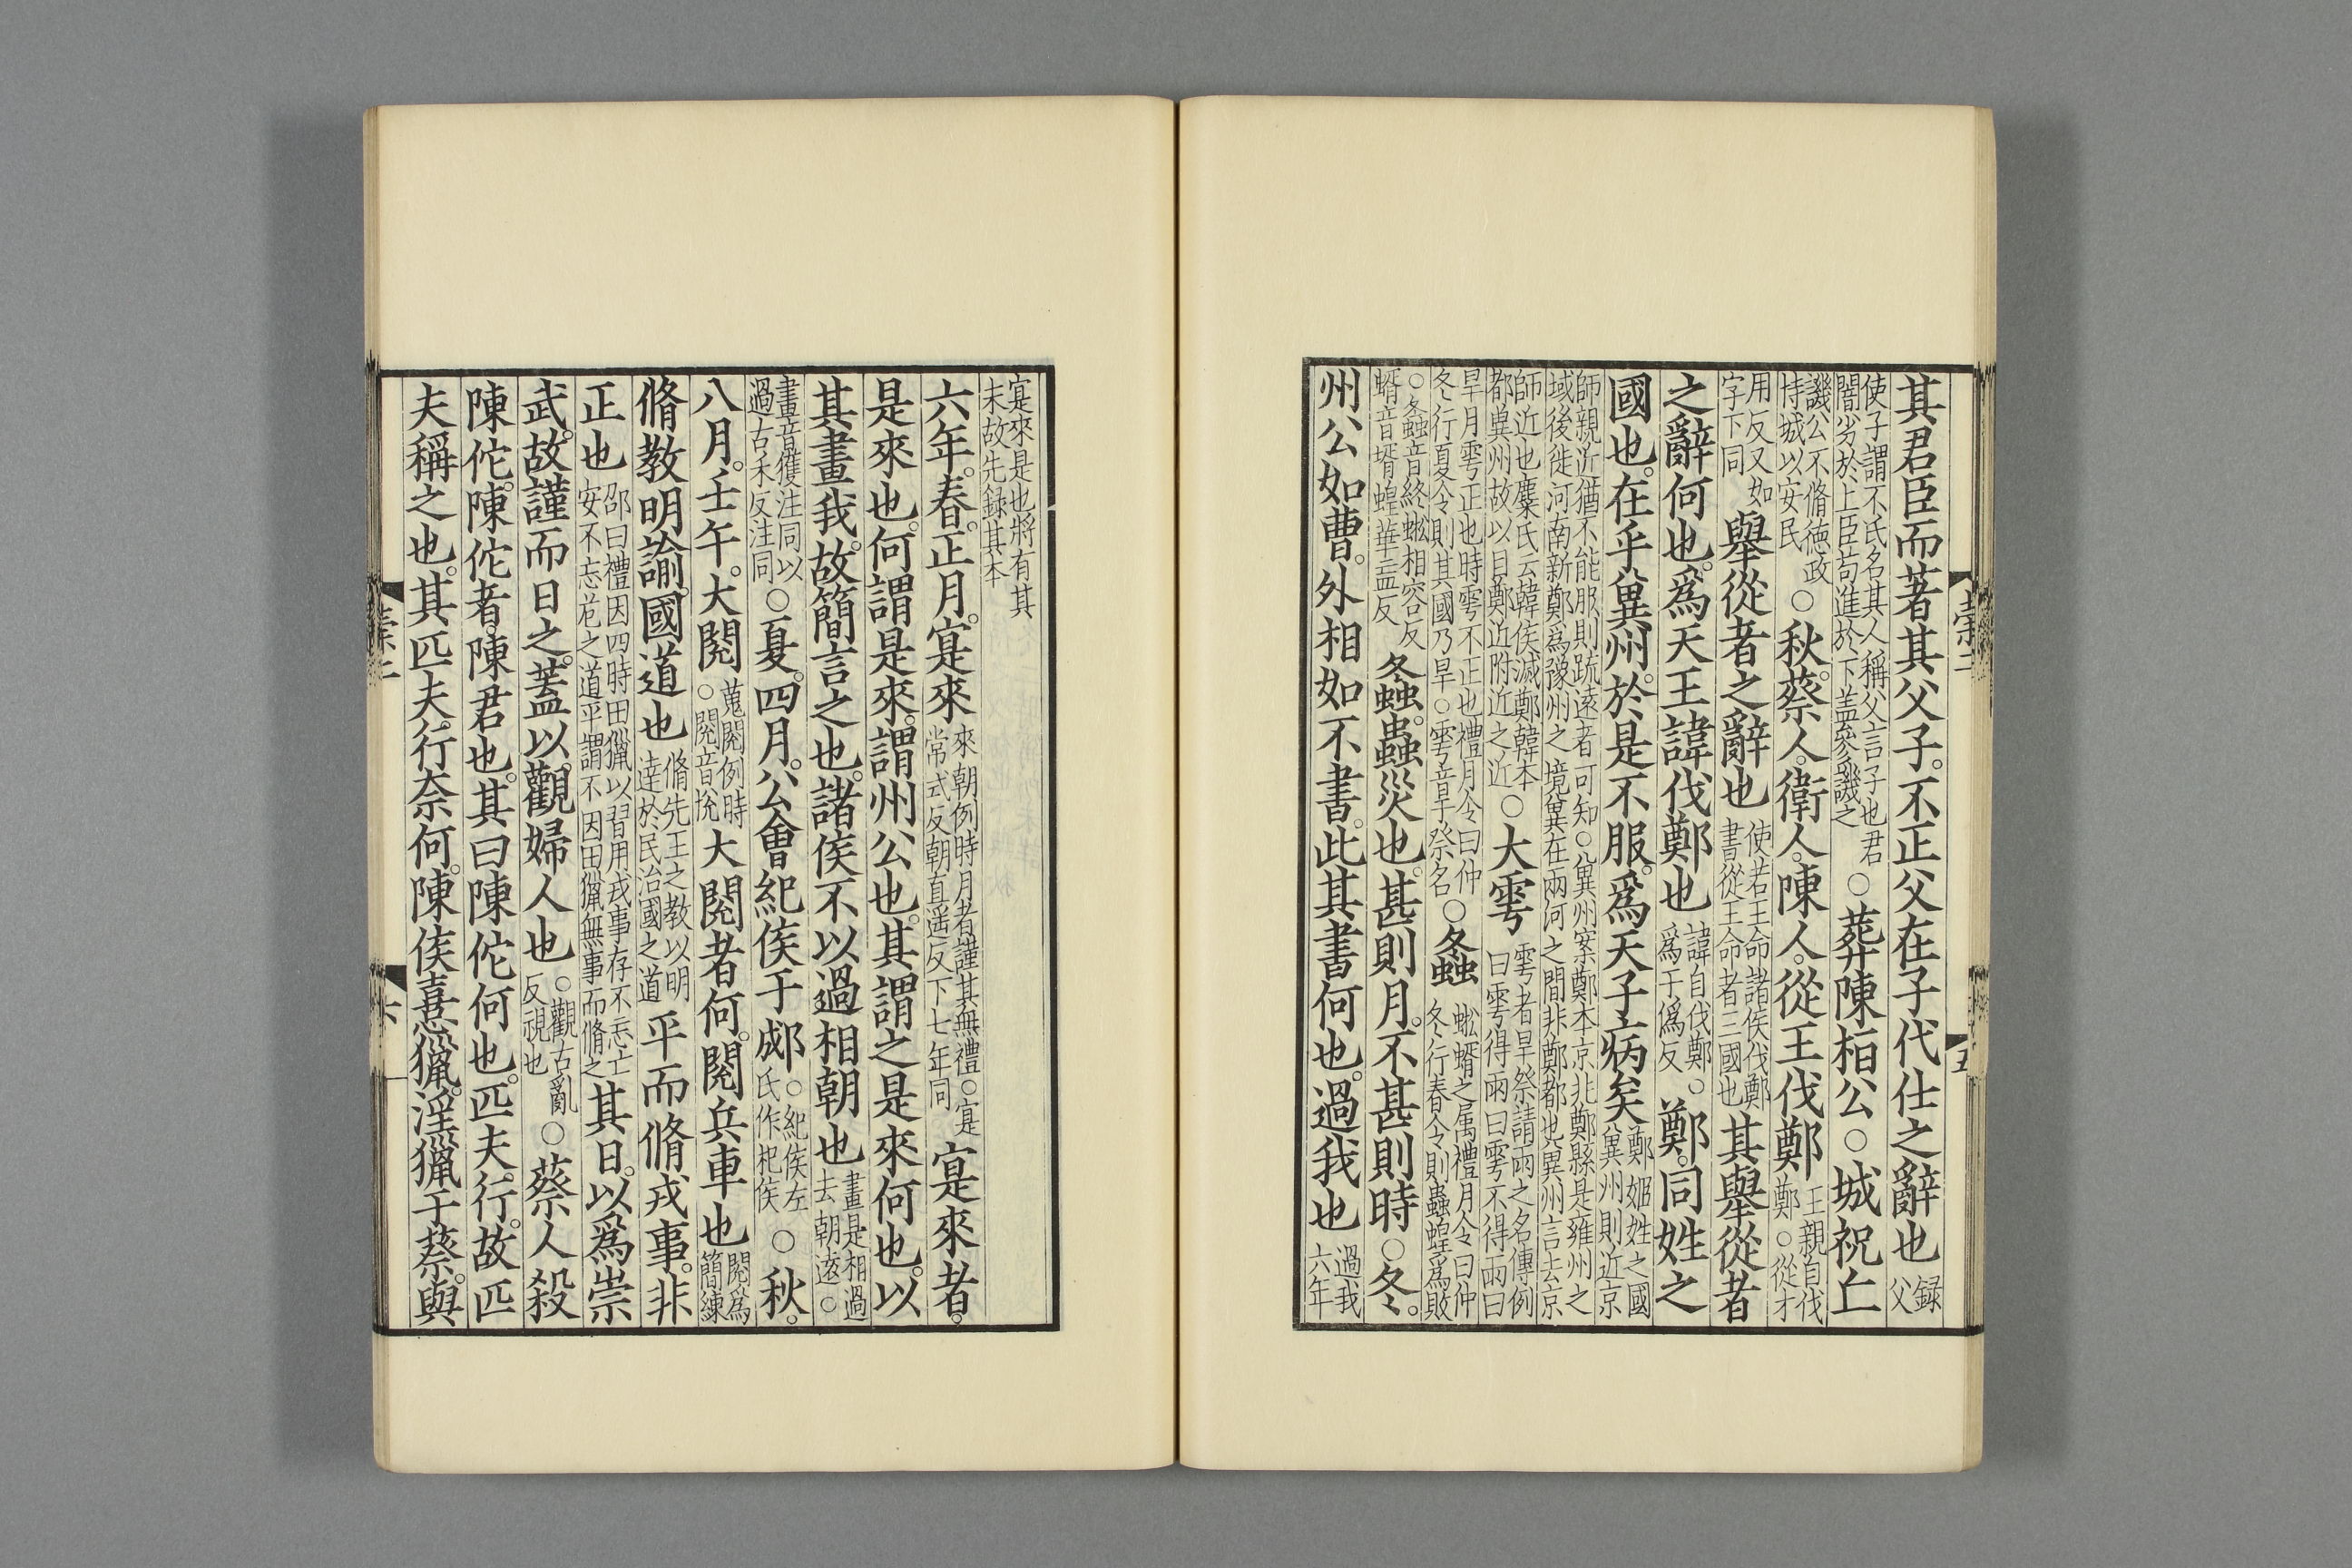 其君臣而著其父子。不正父在子代仕之辭也録父
使子謂不氏名其人稱父言子也君闇劣於上臣苟進於下蓋參譏之○葬陳桓公○城祝丘
譏公不脩德政恃城以安民○秋。蔡人。衛人。陳人。從王伐鄭王親自伐鄭○從才
用反又如字下同舉從者之辭也使若王命諸侯伐鄭書從王命者三國也其舉從者
之辭何也。爲天王諱伐鄭也諱自伐鄭○爲于僞反鄭。同姓之
國也。在乎冀州。於是不服。爲天子病矣鄭姬姓之國冀州則近京
師親近猶不能服則疏遠者可知○冀州案鄭本京兆鄭縣是雍州之域後徙河南新鄭爲豫州之境冀在兩河之間非鄭都也冀州言去京
師近也麋氏云韓侯滅鄭韓本都冀州故以目鄭近附近之近○大雩雩者旱祭請雨之名傳例曰雩得雨曰雩不得雨曰
旱月雩正也時雩不正也禮月令曰仲冬行夏令則其國乃旱○雩音旱祭名○螽蜙蝑之屬禮月令曰仲冬行春令則蟲蝗爲敗
○螽音終蜙相容反蝑音壻蝗華孟反螽。蟲災也。甚則月。不甚則時○冬。
州公如曹。外相如不書。此其書何也。過我也過我六年
寔來是也將有其末故先録其本
六年。春。正月。寔來來朝例時月者謹其無禮○寔常式反朝直遥反下七年同寔來者。
是來也。何謂是來。謂州公也。其謂之是來何也。以
其畫我。故簡言之也。諸侯不以過相朝也畫是相過去朝遠○
畫音獲注同以過古禾反注同○夏。四月。公會紀侯于郕○紀侯左氏作杞侯○秋。
八月。壬午。大閱蒐閱例時○閱音悅大閱者何。閱兵車也閱爲簡練
脩教明諭。國道也脩先王之教以明達於民治國之道平而脩戎事。非
正也邵曰禮因四時田獵以習用戎事存不忘亡安不忘危之道平謂不因田獵無事而脩之其日。以爲崇
武。故謹而日之。蓋以觀婦人也○觀古亂反視也○蔡人殺
陳佗。陳佗者。陳君也。其曰陳佗何也。匹夫。行。故匹
夫稱之也。其匹夫。行奈何。陳侯憙獵。淫獵于蔡。與